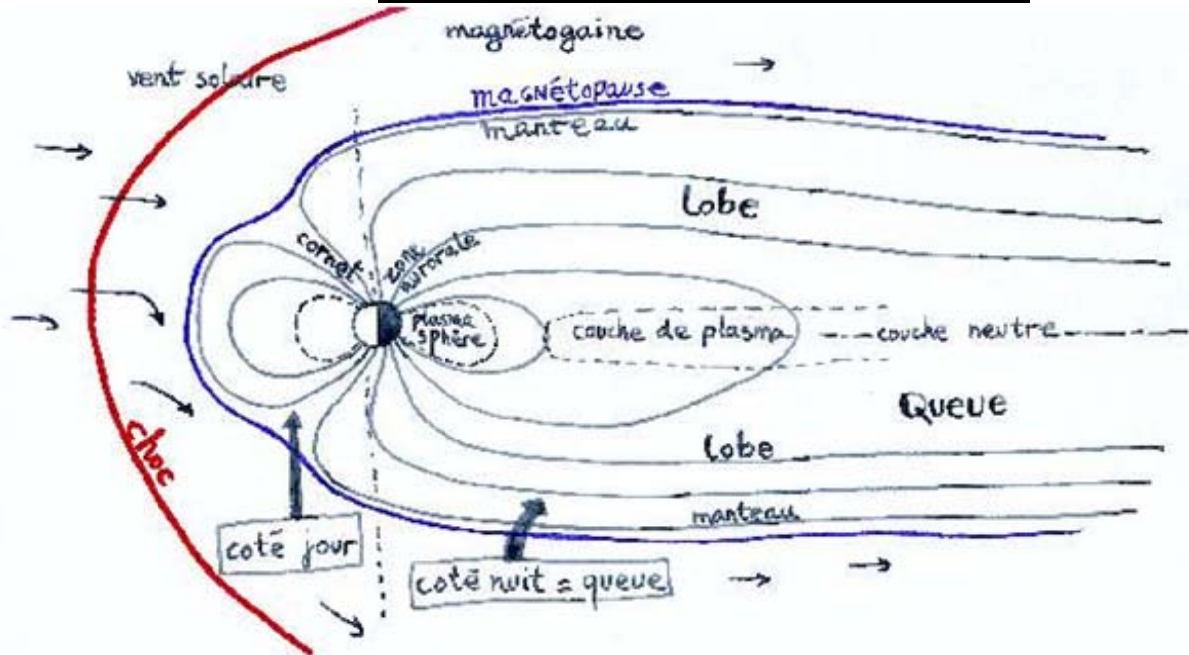 magnétogaine
vent solaire
magnétopause
manteau
lobe
cornet
zone
aurorale
plasma
sphère
couche de plasma
couche neutre
Queue
lobe
choc
manteau
coté jour
coté nuit = queue